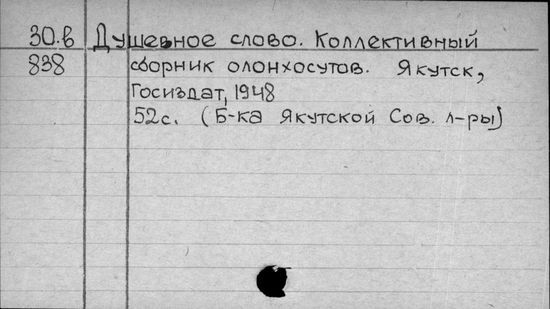 30.в Душевное слово. Коллективный
838 сборник олонхосутов. Якутск,
Госиздат, 1948
52с. (Б-ка Якутской Сов. л-ры)